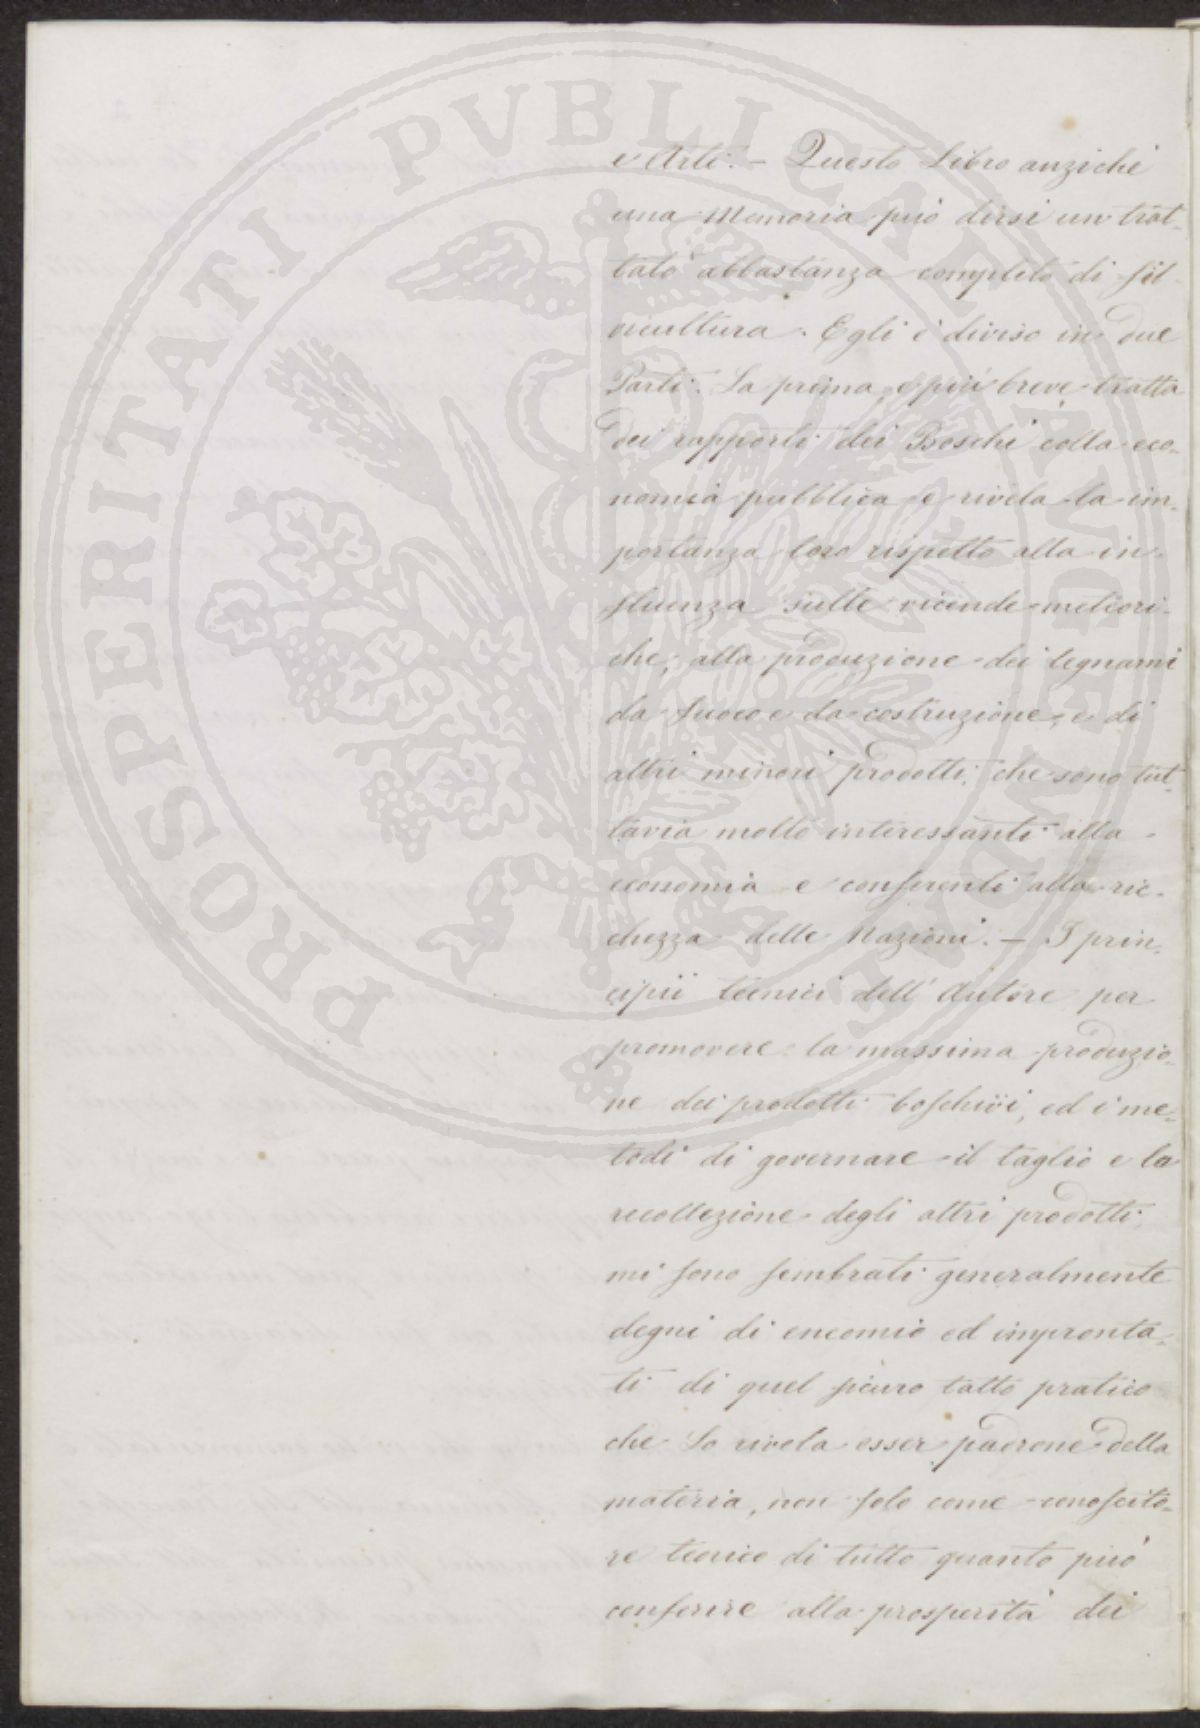 PROSPERITATI PVBLICAE AVGENDAE
e Arti. – Questo Libro anziché
una Memoria può dirsi un trat-
tato abbastanza completo di sil-
vicultura. Egli è diviso in due
Parti. La prima, e più breve tratta
dei rapporti dei Boschi colla eco-
nomia pubblica e rivela la im-
portanza loro rispetto alla in-
fluenza sulle vicende meteori-
che, alla produzione dei legnami
da fuoco e da costruzione, e di
altri minori prodotti, che sono tut-
tavia molto interessanti alla
economia e conferenti alla ric-
chezza delle Nazioni. – I prin-
cipii tecnici dell'Autore per
promovere la massima produzio-
ne dei prodotti boschivi, ed i me-
todi di governare il taglio e la
recollezione degli altri prodotti
mi sono sembrati generalmente
degni di encomio ed impronta-
ti di quel sicuro tatto pratico
che lo rivela esser padrone della
materia, non solo come conoscito-
re teorico di tutto quanto può
conferire alla prosperità dei